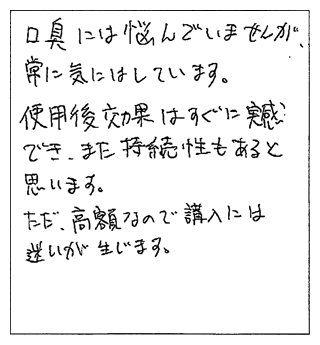 口臭には悩んでいませんが、
常に気にはしています。
使用後効果はすぐに実感
でき、また持続性もあると
思います。
ただ、高額なので講入には
迷いが生じます。